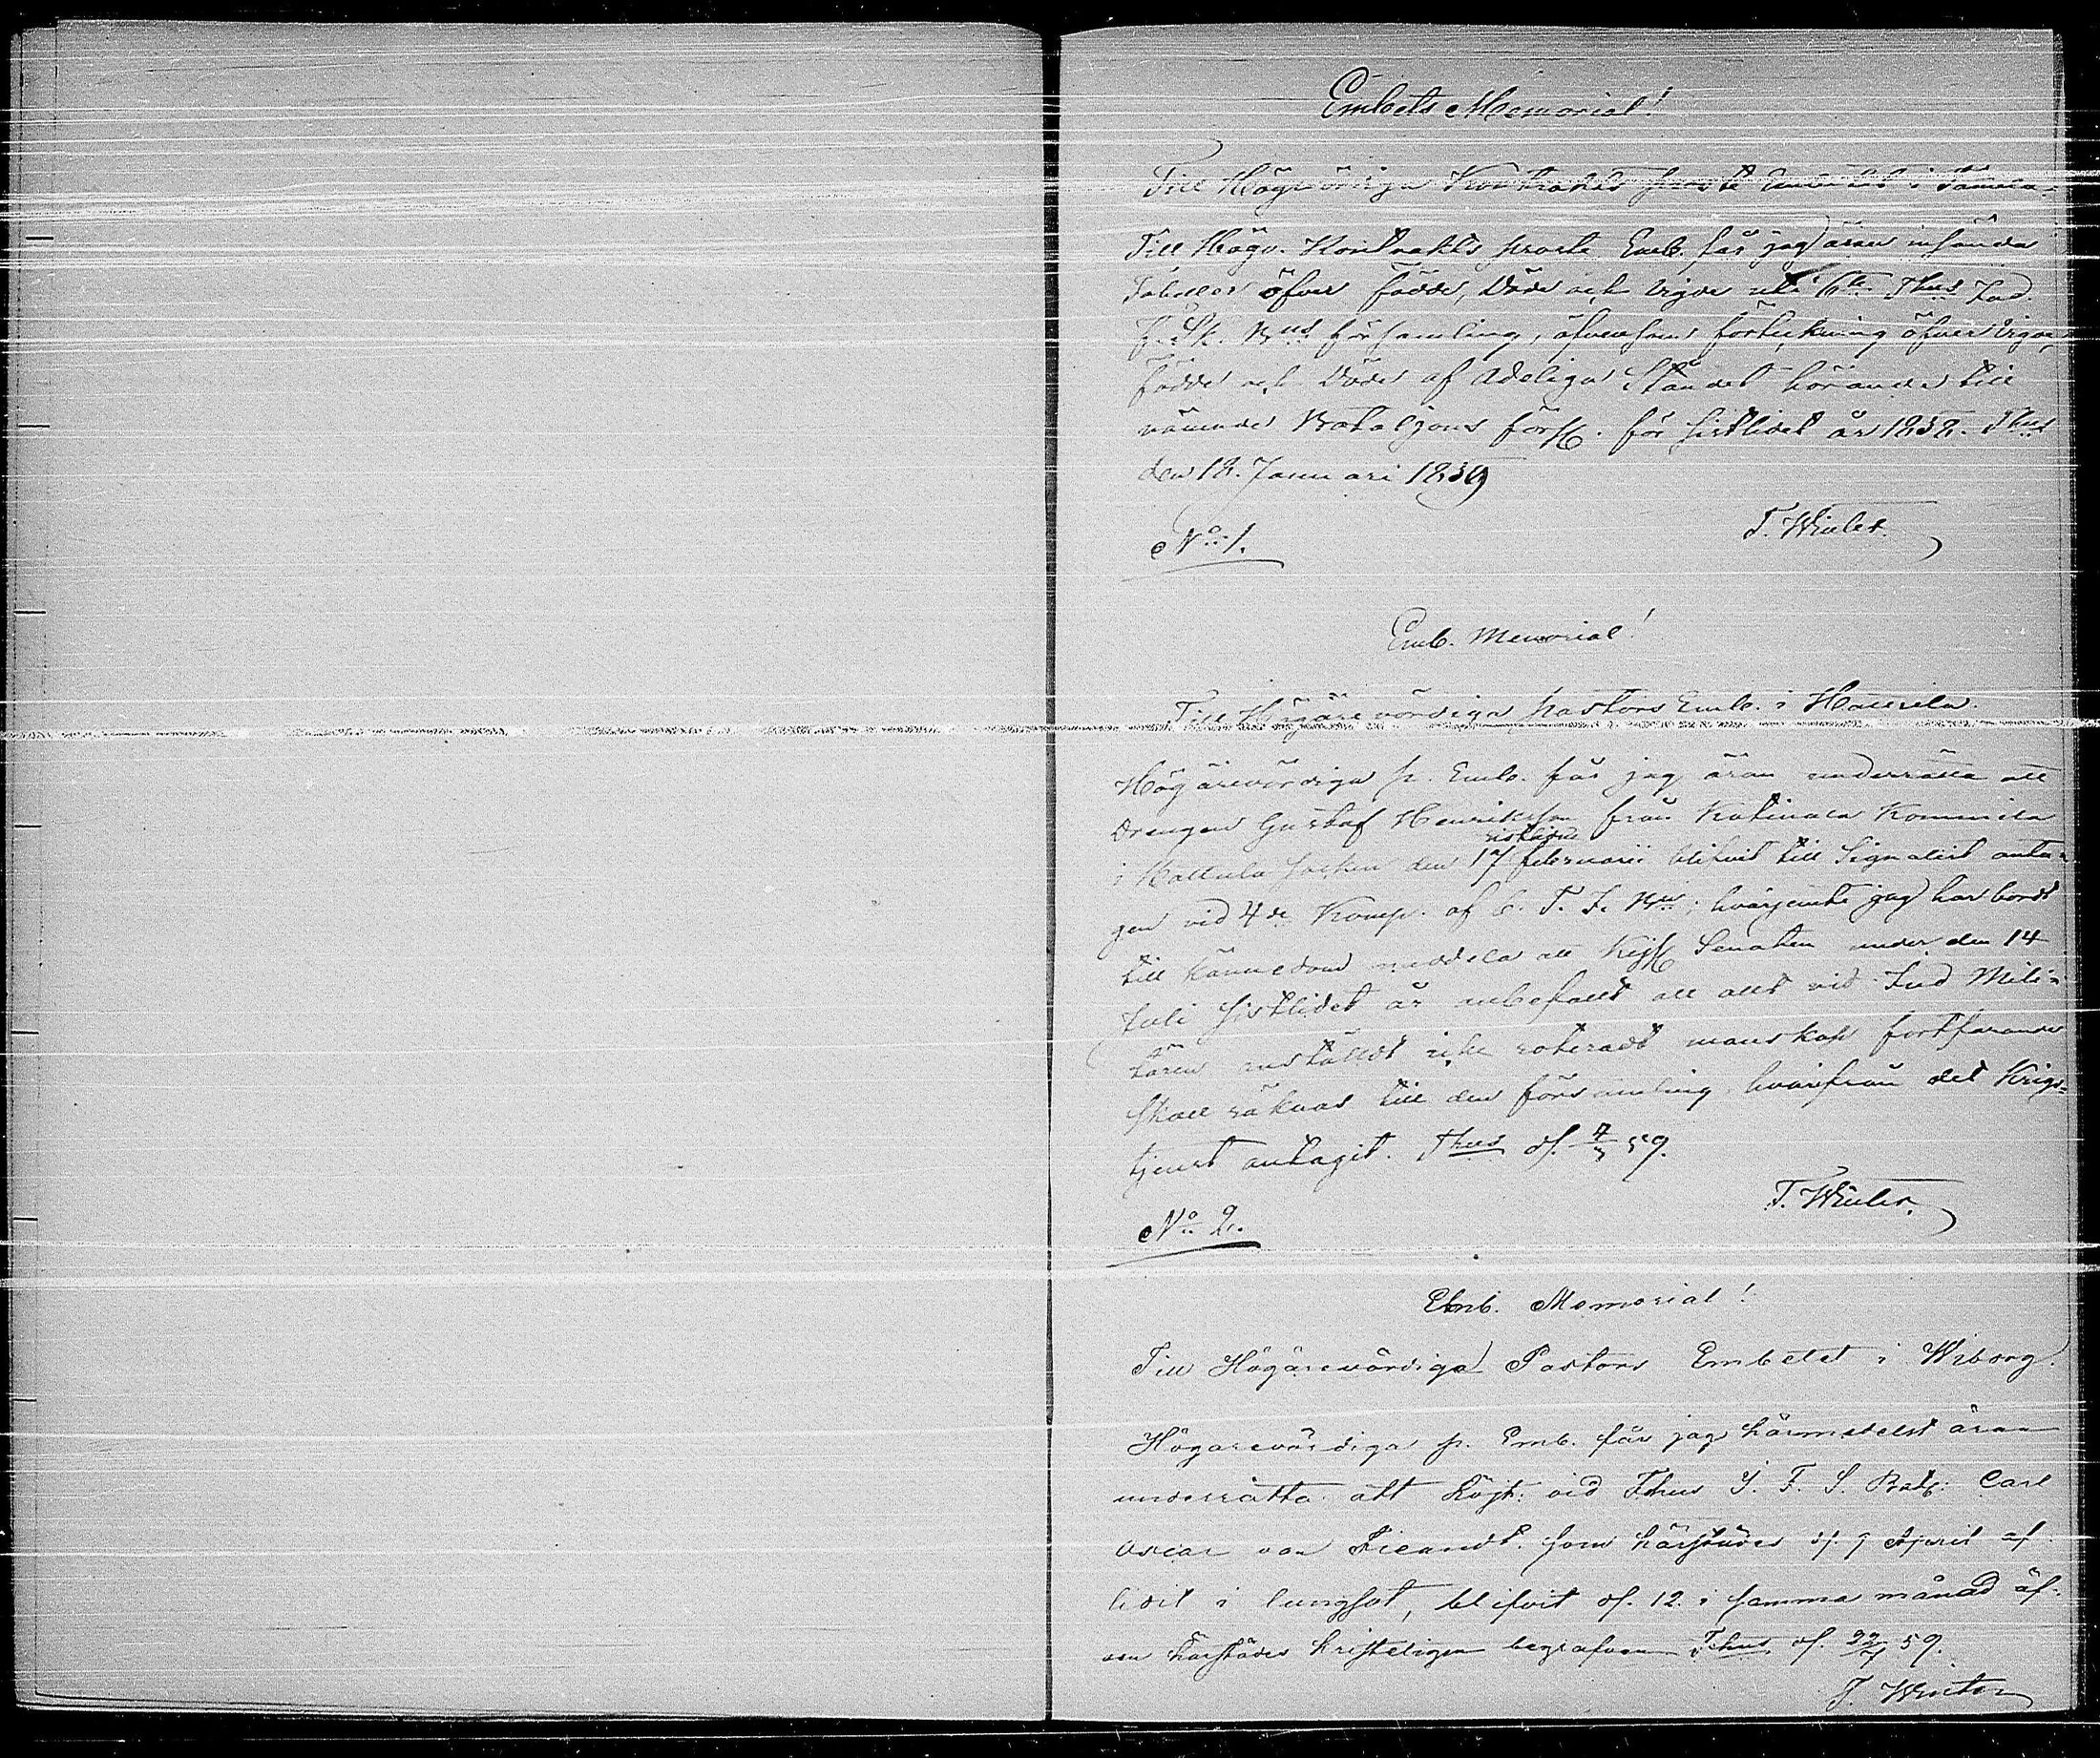 Embets Memorial!
Till Högvördiga Kontrakts proste Embetet i Tamela.
Till Högv. Kontrakts proste Emb. får jag äran insända
Tabeller öfver födde, Döde och vigde uti 6te Thus Ind.
f. Sk. Bns församling, äfvensom förteckning öfver vigde,
födde och Döde af Adeliga Ståndet hörande till
nämnde Bataljons förs. för sistlidet år 1858. Thus
den 12. Januari 1859
No 1. T. Winter.
Emb. Memorial!
Till Högärevördiga pastors Emb. i Hattula.
Högärevördiga p. Emb. får jag äran underrätta att
Drengen Gustaf Henriksson från Katinala
sistliden
i Hattula socken den 17 februarii blifvit till Signalist anta-
gen vid 4de Komp. af 6. T. F. Bn; hvarjemte jag har bordt
till kännedom meddela att Kejs. Senaten under den 14
Juli sistlidet år anbefallt att allt vid Ind Mili-
tären anstäldt icke roteradt manskap fortfarande
skall räknas till den församling, hvarifrån det Krigs-
tjenst antagit. Thus d. 4/3 59.
No 2. T. Winter.
Emb. Memorial!
Till Högärevördiga Pastors Embetet i Wiborg.
Högärevördiga p. Emb. får jag härmedelst äran
underrätta att Löjt: vid Thus I. F. S. Bat: Carl
Oscar von härstädes d. 9 April af-
lidit i lungsot, blifvit d. 12 i samma månad äf-
ven härstädes kristeligen begrafven Thus d. 22/4 59.
T. Winter